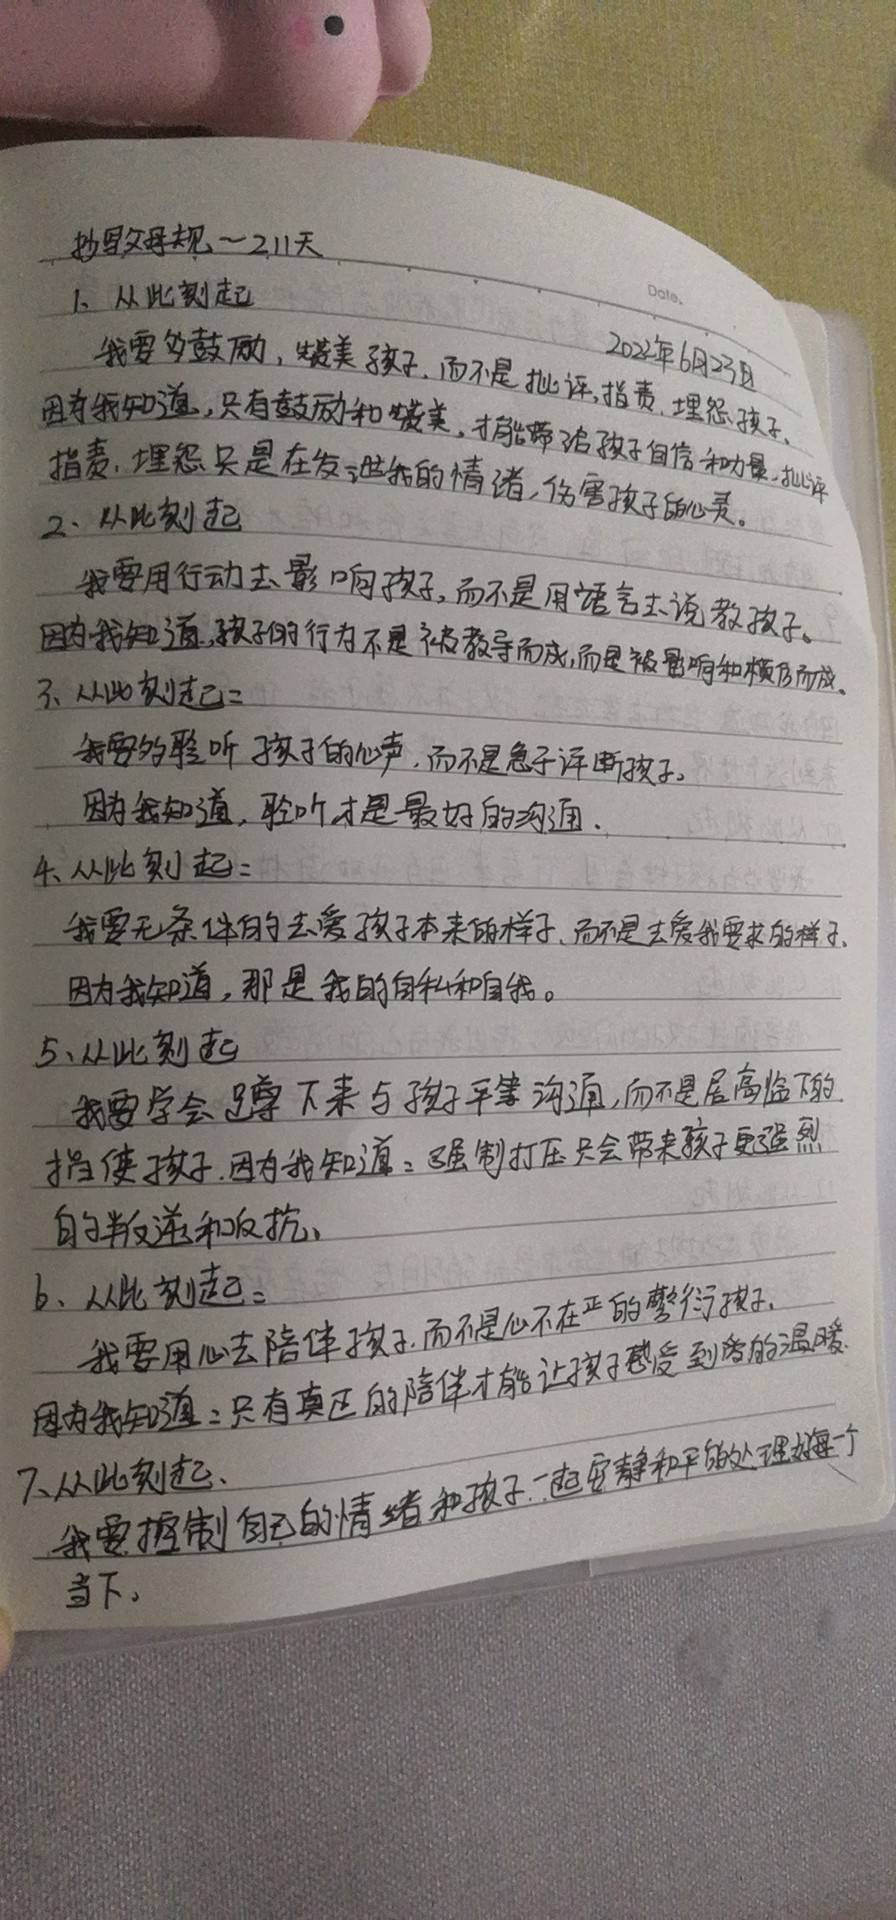 抄写父母规～211天
Date.
1、从此刻起
2022年6月23日
我要多鼓励，赞美孩子，而不是批评，指责，埋怨孩子。
因为我知道，只有鼓励和赞美，才能带给孩子自信和力量，批评
指责，埋怨只是在发泄我的情绪，伤害孩子的心灵。
2、从此刻起
我要用行动去影响孩子，而不是用语言去说教孩子。
因为我知道，孩子的行为不是被教导而成，而是被影响和模仿而成。
3、从此刻起：
我要多聆听孩子的心声，而不是急于评断孩子。
因为我知道，聆听才是最好的沟通．
4、从此刻起：
我要无条件的去爱孩子本来的样子、而不是去爱我要求的样子、
因为我知道，那是我的自私和自我。
5、从此刻起
我要学会蹲下来与孩子平等沟通，而不是居高临下的
指使孩子．因为我知道：强制打压只会带来孩子更强烈
的叛逆和反抗、
6、从此刻起：
我要用心去陪伴孩子．而不是心不在焉的敷衍孩子．
因为我知道：只有真正的陪伴才能让孩子感受到爱的温暖．
7、从此刻起、
我要控制自己的情绪和孩子一起安静和平的处理好每一个
当下、